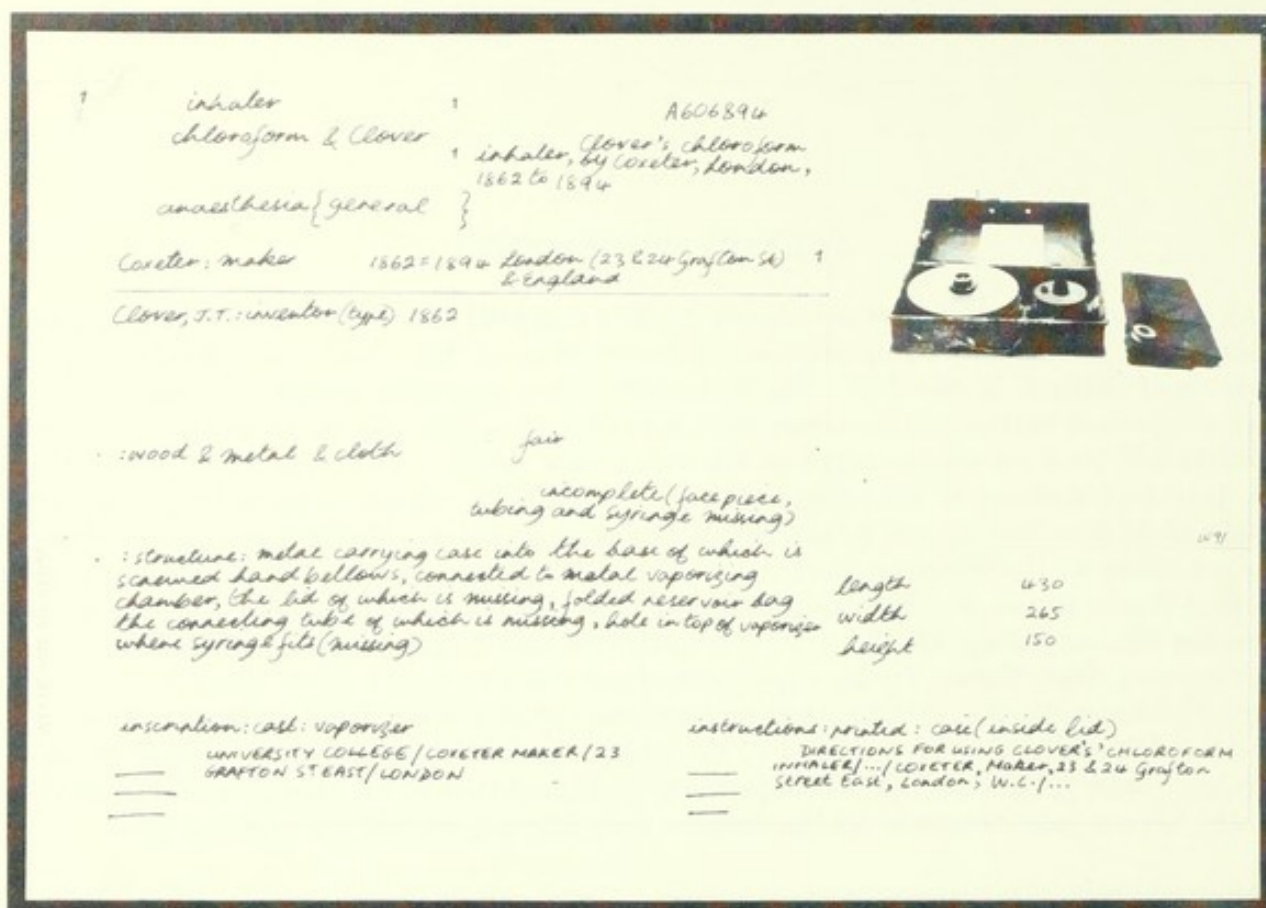 1 inhaler 1 A606894
chloroform & Clover
1 inhaler, Clover's chloroform
by Coxeter, London,
1862 to 1894
anaesthesia {general }
Coxeter: maker 1862=1894 London (23 & 24 Grafton St) 1
& England
Clover, J.T.: inventor (type) 1862
10
:wood & metal & cloth fair
incomplete (face piece,
tubing and syringe missing)
W91
: structure: metal carrying case into the base of which is
screwed hand bellows, connected to metal vaporizing
chamber, the lid of which is missing, folded reservoir bag
the connecting tube of which is missing, hole in top of vaporizer
where syringe fits (missing)
length 430
width 265
height 150
inscription: cast: vaporizer
UNIVERSITY COLLEGE / COXETER MAKER / 23
GRAFTON ST EAST / LONDON
instructions: printed: case (inside lid)
DIRECTIONS FOR USING CLOVER'S' CHLOROFORM
INHALER/.../COXETER, Maker, 23 & 24 Grafton
Street East, London, W.C./...